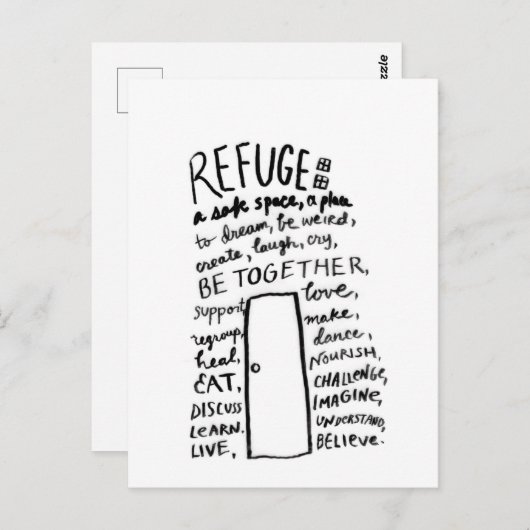 REFUGE:
a safe space, a place
to dream, be weird,
create, laugh, cry,
BE TOGETHER,
support, love,
regroup, make,
heal, dance,
EAT, NOURISH,
DISCUSS CHALLENGE,
LEARN. IMAGINE,
LIVE, UNDERSTAND,
BELIEVE.
zzle